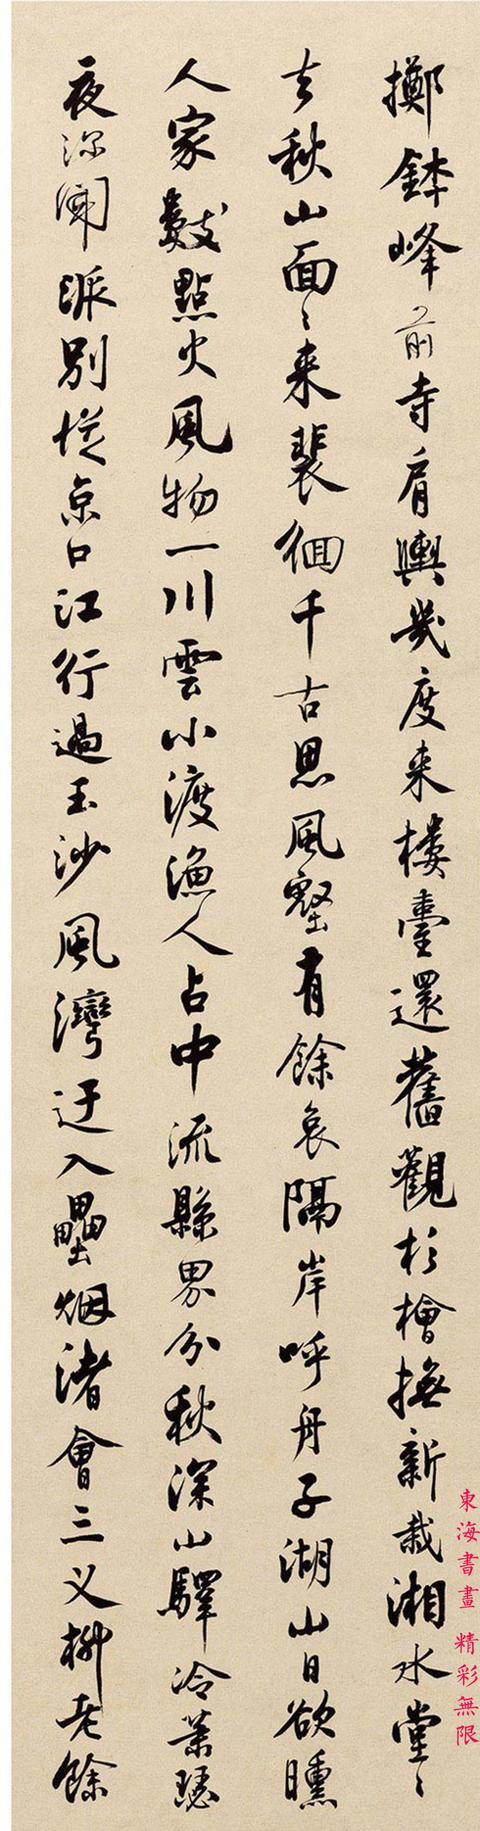 擲鉢峰前寺肩輿幾度来樓臺還舊觀杉檜撫新栽湘水堂〻
去秋山面〻来裴徊千古思風壑有餘哀隔岸呼舟子湖山日欲曛
人家數點火風物一川雲小渡漁人占中流縣界分秋深山驛冷葉瑟
夜深聞派別從京口江行過玉沙風灣迂入壘烟渚會三叉柳老餘
東海書畫 精彩無限